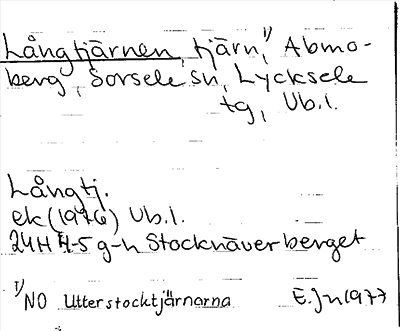 Långtjärnen, tjärn,¹⁾ Abmo-
berg, Sorsele sn, Lycksele
tg, Vb.l.
Långtj.
ek (1976) Vb.l.
24H 4-5 g-h Stocknäverberget
¹⁾ NO Utterstocktjärnarna E.Jn 1977